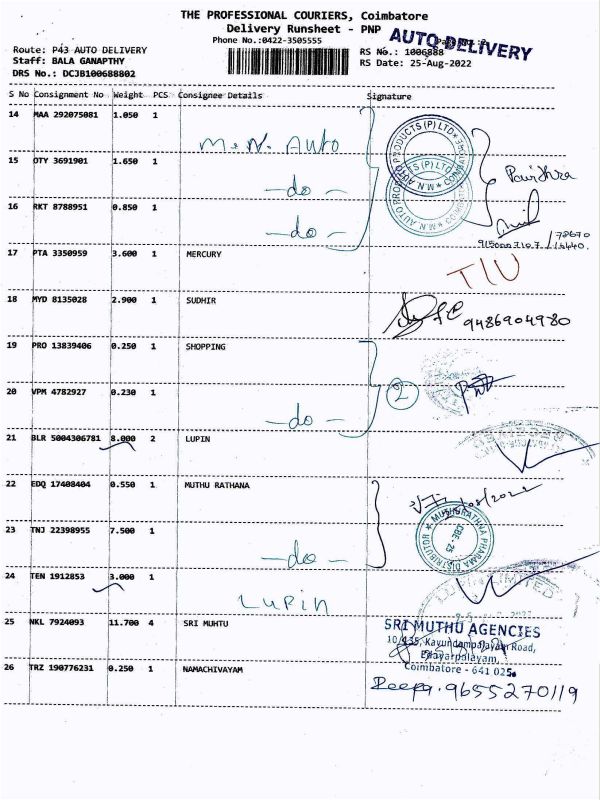 THE PROFESSIONAL COURIERS, Coimbatore
Delivery Runsheet - PNP
AUTO DELIVERY
Phone No.:0422-3505555
Route: P43 AUTO DELIVERY
RS No.: 1006888
Staff: BALA GANAPTHY
RS Date: 25-Aug-2022
DRS No.: DCJB100688802
S No Consignment No Weight PCS Consignee Details Signature
14 MAA 292075081 1.050 1
M.N. Auto
15 OTY 3691901 1.650 1
-do-
16 RKT 8788951 0.850 1
-do-
17 PTA 3350959 3.600 1 MERCURY
TIU
18 MYD 8135028 2.900 1 SUDHIR
9486904980
19 PRO 13839406 0.250 1 SHOPPING
20 VPM 4782927 0.230 1
-do-
2
21 BLR 5004306781 8.000 2 LUPIN
22 EDQ 17408404 0.550 1 MUTHU RATHANA
23 TNJ 22398955 7.500 1
-do-
MUTHURATHNA PHARMA DISTRIBUTOR
CBE-25
24 TEN 1912853 3.000 1
Lupin
25 NKL 7924093 11.700 4 SRI MUHTU
SRI MUTHU AGENCIES
10/435, Kavundampalayam Road,
Edayarpalayam,
Coimbatore - 641 025.
26 TRZ 190776231 0.250 1 NAMACHIVAYAM
Deepa. 9655270119